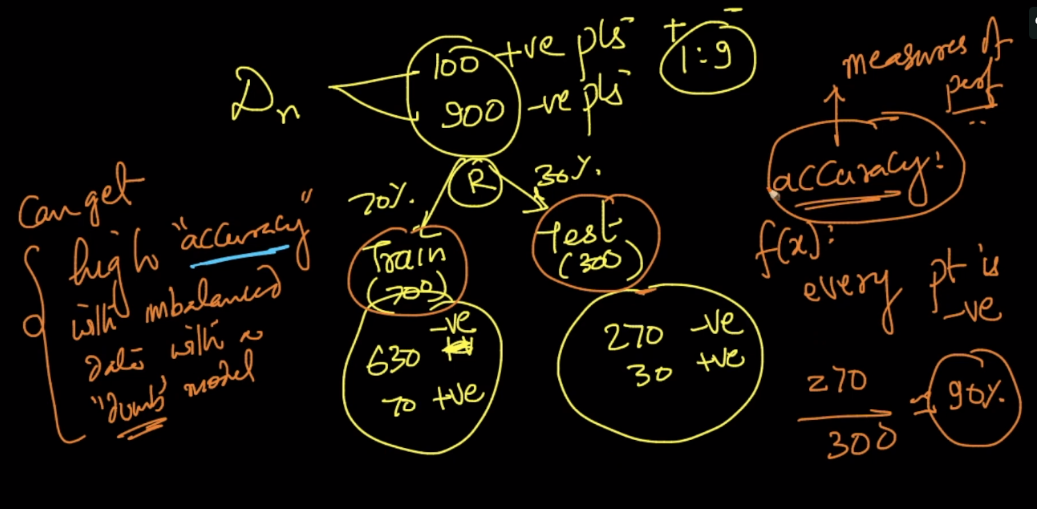 Dn
100 +ve pts
900 -ve pts
+ -
1:9
R
70%.
30%.
Train
(700)
630 -ve
70 +ve
Test
(300)
270 -ve
30 +ve
Can get
high "accuracy"
with imbalanced
data with a
"dumb" model
measures of
perf
accuracy:
f(x):
every pt is
-ve
270
300
= 90%.